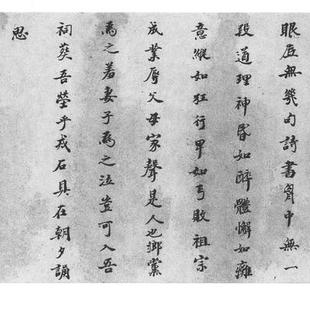 眼底無幾句詩書胸中無一
段道理神昏如醉體懈如癱
意縱如狂行卑如丐敗祖宗
成業辱父母家聲是人也鄉黨
為之羞妻子為之泣豈可入吾
祠葬吾塋乎戒石具在朝夕誦
思